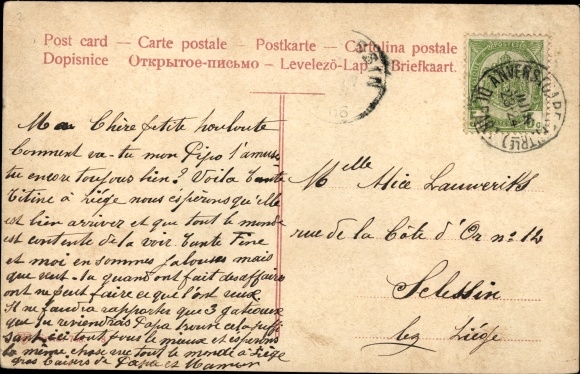 Post card — Carte postale — Postkarte — Cartolina postale
Dopisnice Открытое-письмо — Levelező-Lap — Briefkaart.
ANVERS
Ma Chère petite
Comment va-tu mon Pipo t'amuse
tu encore toujours bien? Voila Tante
Titine à Liége nous espérons qu'elle
est bien arrivez et que tout le monde
est contente de la voir Tante Fine
et moi en sommes jalouses mais
que veut-tu quand ont fait des affaires
ont ne peut faire ce que l'ont veux
Il ne faudra rapporter que 3 gateaux
que tu reviendras Papa trouve cela
sant ici tout pous le mieux et esperons
la même chose vue tout le monde à Liége
gros baisers de Papa et Maman
Melle Alice Lauweriks
rue de la Côte d'Or n° 12
Selessin
lez Liége